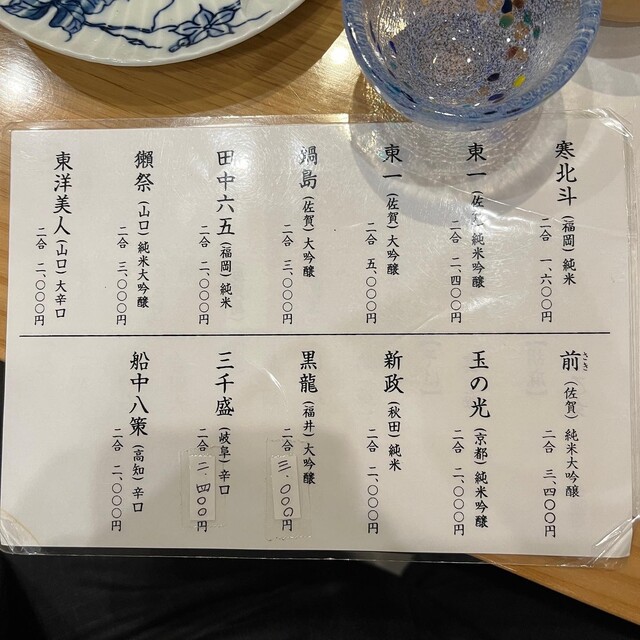 寒北斗（福岡）純米
二合 一、六〇〇円
東一（佐賀）純米吟醸
二合 二、四〇〇円
東一（佐賀）大吟醸
二合 五、〇〇〇円
鍋島（佐賀）大吟醸
二合 三、〇〇〇円
田中六五（福岡）純米
二合 二、〇〇〇円
獺祭（山口）純米大吟醸
二合 三、〇〇〇円
東洋美人（山口）大辛口
二合 二、〇〇〇円
前（佐賀）純米大吟醸
さき
二合 三、四〇〇円
玉の光（京都）純米吟醸
二合 二、〇〇〇円
新政（秋田）純米
二合 二、〇〇〇円
黒龍（福井）大吟醸
二合 三、〇〇〇円
三千盛（岐阜）辛口
二合 二、四〇〇円
船中八策（高知）辛口
二合 二、〇〇〇円